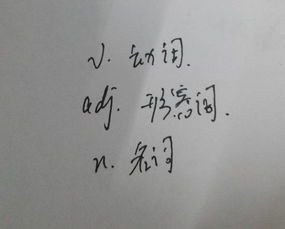 v. 动词.
adj. 形容词.
n. 名词